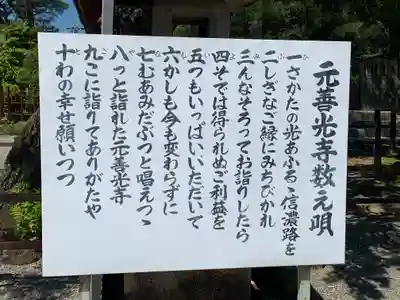 元善光寺数え唄
一さかたの光あふるゝ信濃路を
二しさなご縁にみちびかれ
三んなそろってお詣りしたら
四そでは得られぬご利益を
五つもいっぱいいただいて
六かしも今も変わらずに
七むあみだぶつと唱えつゝ
八っと詣れた元善光寺
九こに詣りてありがたや
十わの幸せ願いつつ